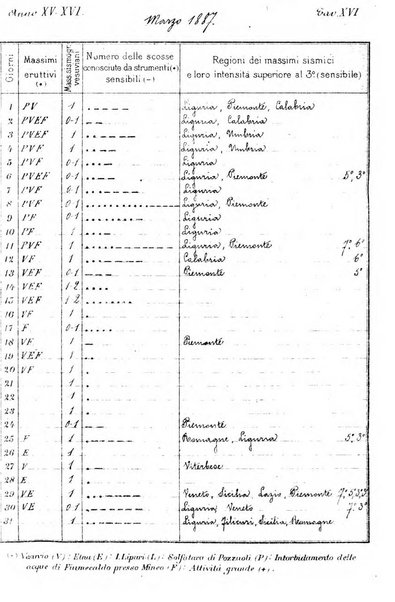 Anno XV-XVI. Marzo 1887. Tav. XVI
Giorni | Massimi eruttivi (•) | Mass. sismogr. vesuviani | Numero delle scosse conosciute da strumenti (•) sensibili (–) | Regioni dei massimi sismici e loro intensità superiore al 3º (sensibile)
1 PV 1 Liguria, Piemonte, Calabria
2 PVEF 0-1 Liguria, Calabria
3 PVEF 1 Liguria, Umbria
4 PVF 1 Liguria, Umbria
5 PVF 0-1 Liguria
6 PVEF 0-1 Liguria, Piemonte 5º, 3º
7 PVF 0-1 Liguria
8 PVF 0-1 Liguria, Piemonte
9 PF 0-1 Liguria
10 PF 1 Liguria
11 PVF 1 Liguria, Piemonte 7º, 6º
12 VF 1 Calabria 6º
13 VEF 0-1 Piemonte 5º
14 VEF 1-2
15 VEF 1-2
16 VF 1
17 F 0-1
18 VF 1 Piemonte
19 VEF 1
20 VF 1
21 1
22 1
23 1
24 0-1 Piemonte
25 F 1 Romagne, Liguria 5º, 3º
26 E 1
27 V 1 Viterbese
28 E 1
29 VE 1 Veneto, Sicilia, Lazio, Piemonte 7º, 5º, 3º, 3º
30 VE 0-1 Liguria, Veneto 7º
31 1 Liguria, Filicuri, Sicilia, Romagne
(•) Vesuvio (V): Etna (E): I. Lipari (L): Solfatara di Pozzuoli (P): Intorbidamento delle
acque di Fiumecaldo presso Mineo (F): Attività grande (+).